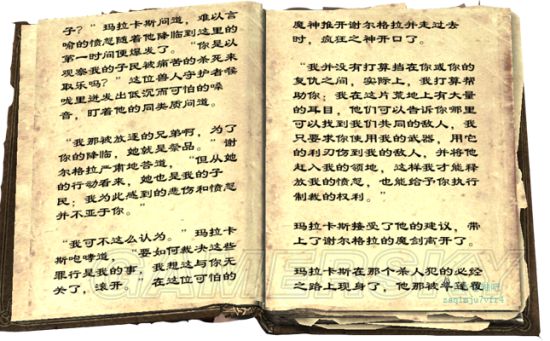 子？”玛拉卡斯问道，难以言
喻的愤怒随着他降临到这里的
第一时间便爆发了。“你是以
观察我的子民被痛苦的杀死来
取乐吗？”这位兽人守护者喉
咙里迸发出低沉而可怕的嗓
音，盯着他的同类质问道。
“我那被放逐的兄弟啊，为了
你的降临，她就是祭品。”谢
尔格拉严肃地答道，“但从她
的行动看来，她也是我的子
民；我为此感到的悲伤和愤怒
并不亚于你。”
“我可不这么认为。”玛拉卡
斯咆哮道，“要如何裁决这些
罪行是我的事，我想这与你无
关了，滚开。”在这位可怕的
魔神推开谢尔格拉并走过去
时，疯狂之神开口了。
“我并没有打算挡在你或你的
复仇之间，实际上，我打算帮
助你；我在这片荒地上有大量
的耳目，他们可以告诉你哪里
可以找到我们共同的敌人，我
只要求你使用我的武器，用它
的利刃伤到我的敌人，并将他
赶入我的领地，这样我才能释
放我的愤怒，也能给予你执行
制裁的权利。”
玛拉卡斯接受了他的建议，带
上了谢尔格拉的魔剑离开了。
玛拉卡斯在那个杀人犯的必经
之路上现身了，他那被斗篷覆
GAMERSKY
zaqimju7vfr4